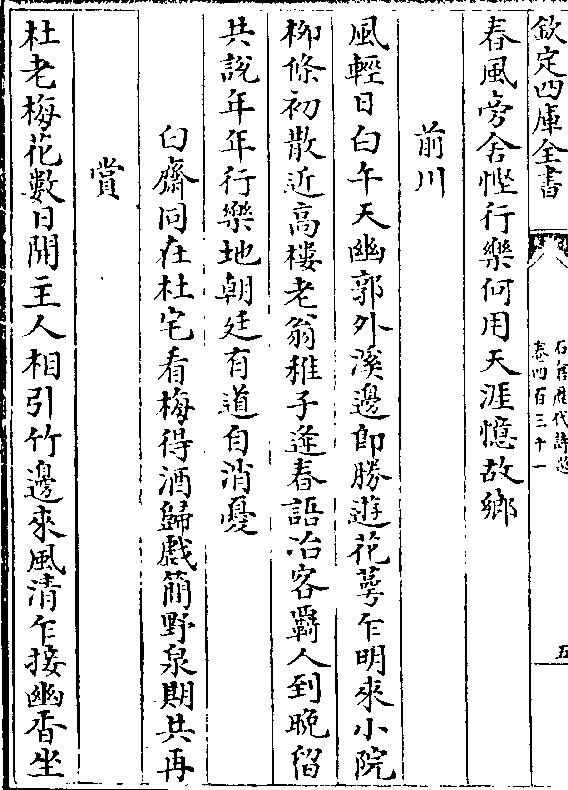 欽定四庫全書
石倉歷代詩選
卷四百三十一
五
春風旁舍慳行樂何用天涯憶故鄉
前川
風輕日白午天幽郭外溪邊即勝遊花萼乍明來小院
柳條初散近高樓老翁稚子逢春語冶客羈人到晚留
共說年年行樂地朝廷有道自消憂
白齋同在杜宅看梅得酒歸戲簡野泉期共再
賞
杜老梅花數日開主人相引竹邊來風清乍接幽香坐